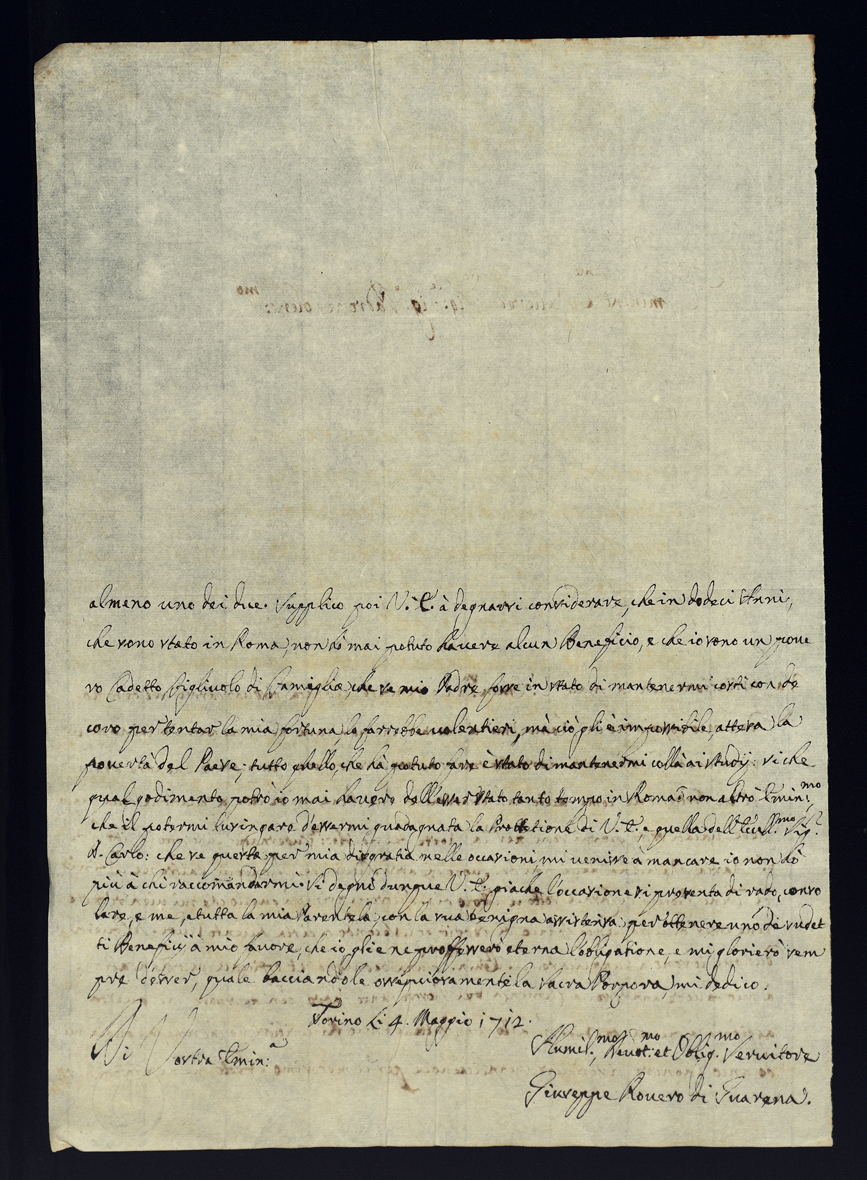 almeno uno dei dice. Supplico poi V. E. à degnarsi considerare, che in dodeci Anni,
che sono stato in Roma, non hò mai potuto havere alcun Beneficio, e che io sono un pove
ro Cadetto Figlivolo di Famiglia, che se mio Padre fosse in stato di mantenermi costì con de
coro per tentar la mia fortuna lo farebbe volentieri, mà ciò gli è impossibile, attesa la
povertà del Paese; tutto quello, che hà potuto fare è stato di mantenermi collà ai studij: si che
qual godimento potrò io mai havere dell'esser stato tanto tempo in Roma, se non altro Emin.mo
che il potermi lusingare d'essermi guadagnata la Prottetione di V. E. e quella dell'Eccell.mo Sig.r
D. Carlo: che se questa per mia disgratia nelle occasioni mi venisse à mancare io non hò
più à chi raccomandarmi. Si degni dunque V. E. giache l'occasione si presenta di rado, conso
lare, e me, e tutta la mia Parentela, con la sua benigna assistenza per ottenere uno de sudet
ti Beneficij à mio favore, che io glie ne professerò eterna l'obligatione, e mi glorierò sem
pre d'esser, quale bacciandole ossequiosamente la sacra Porpora, mi dedico.
Torino li 4. Maggio 1712.
Di Vostra Emin.a
Humil.mo Devot.mo et Oblig.mo Servitore
Giuseppe Rovero di Guarena.